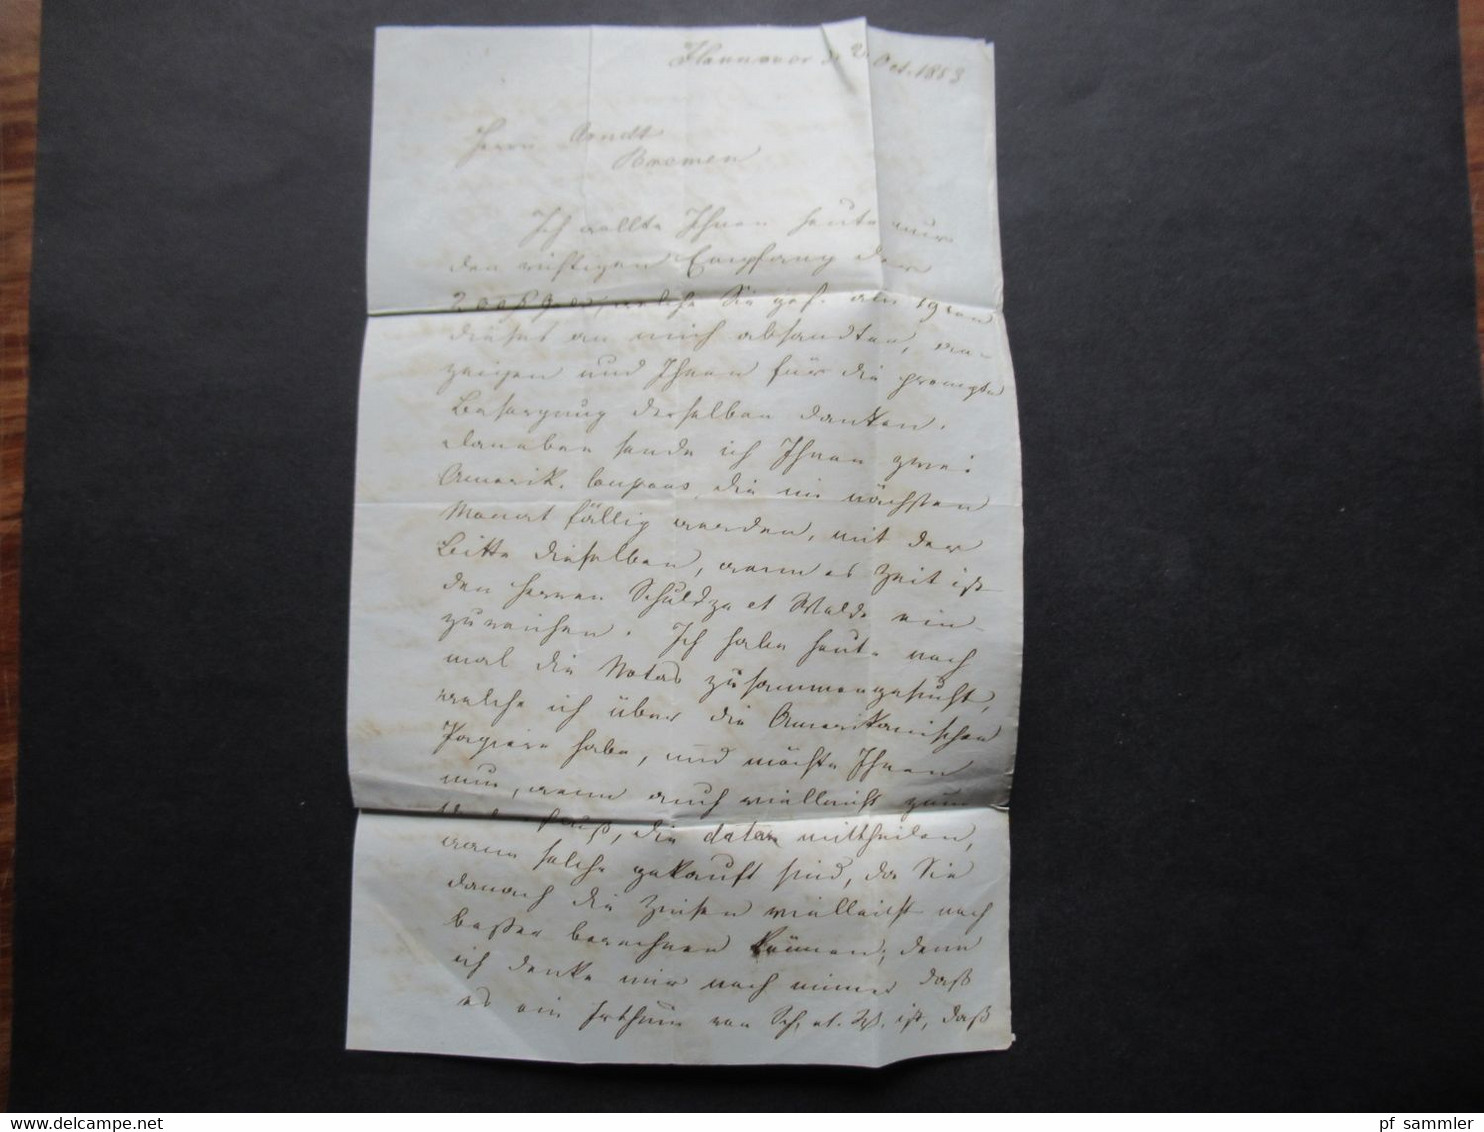 Hannover d. 2 Oct. 1853
Herrn Arndt
Bremen
Ich wollte Ihnen heute nur
den richtigen Empfang der
200 welche Sie gef. am 19ten
dieses an mich absandten, an-
zeigen und Ihnen für die prompte
Besorgung derselben danken.
Daneben sende ich Ihnen zwei
Amerik. Coupons die im nächsten
Monat fällig werden, mit der
Bitte dieselben, wenn es Zeit ist
den Herren Schultze et Wolde ein
zureichen. Ich habe heute noch
mal die Notas zusammengesucht,
welche ich über die Amerikanischen
Papiere habe, und möchte Ihnen
nun, wenn auch vielleicht zum
die daten mittheilen,
wann solche gekauft sind, da Sie
danach die Zinsen vielleicht noch
besser berechnen können; denn
ich denke mir noch immer daß
es ein Irthum von Sch. et. W. ist, daß
delcampe.net
pf sammler